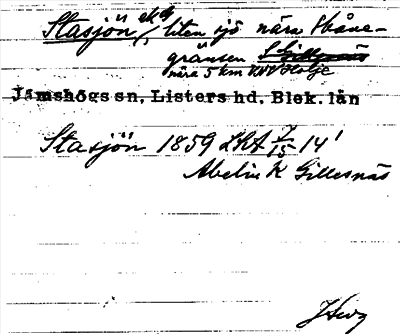 Stasjön, liten sjö nära Skåne-
gränsen
nära 5 km VNV Holje
Jämshögs sn, Listers hd. Blek. län
Stasjön 1859 LKA 7/15 14'
Abelin K Gillesnäs